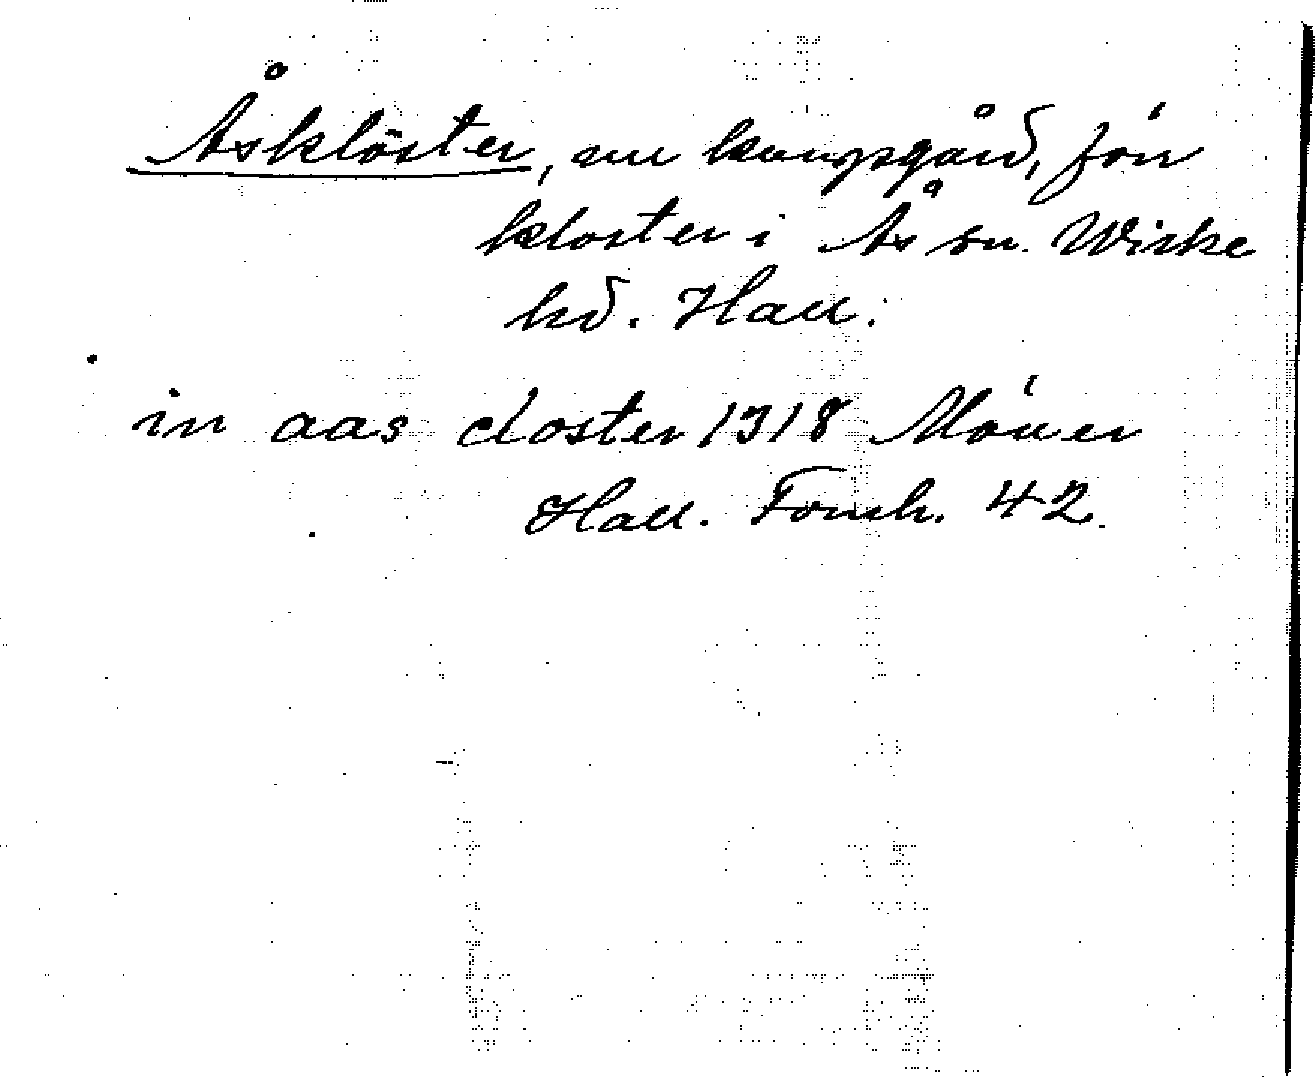 Åsklöster, nu kungsgård, förr
kloster i Ås sn. Wiske
hd. Hall.
in aas closter 1318 Möller
Hall. Fornh. 42.